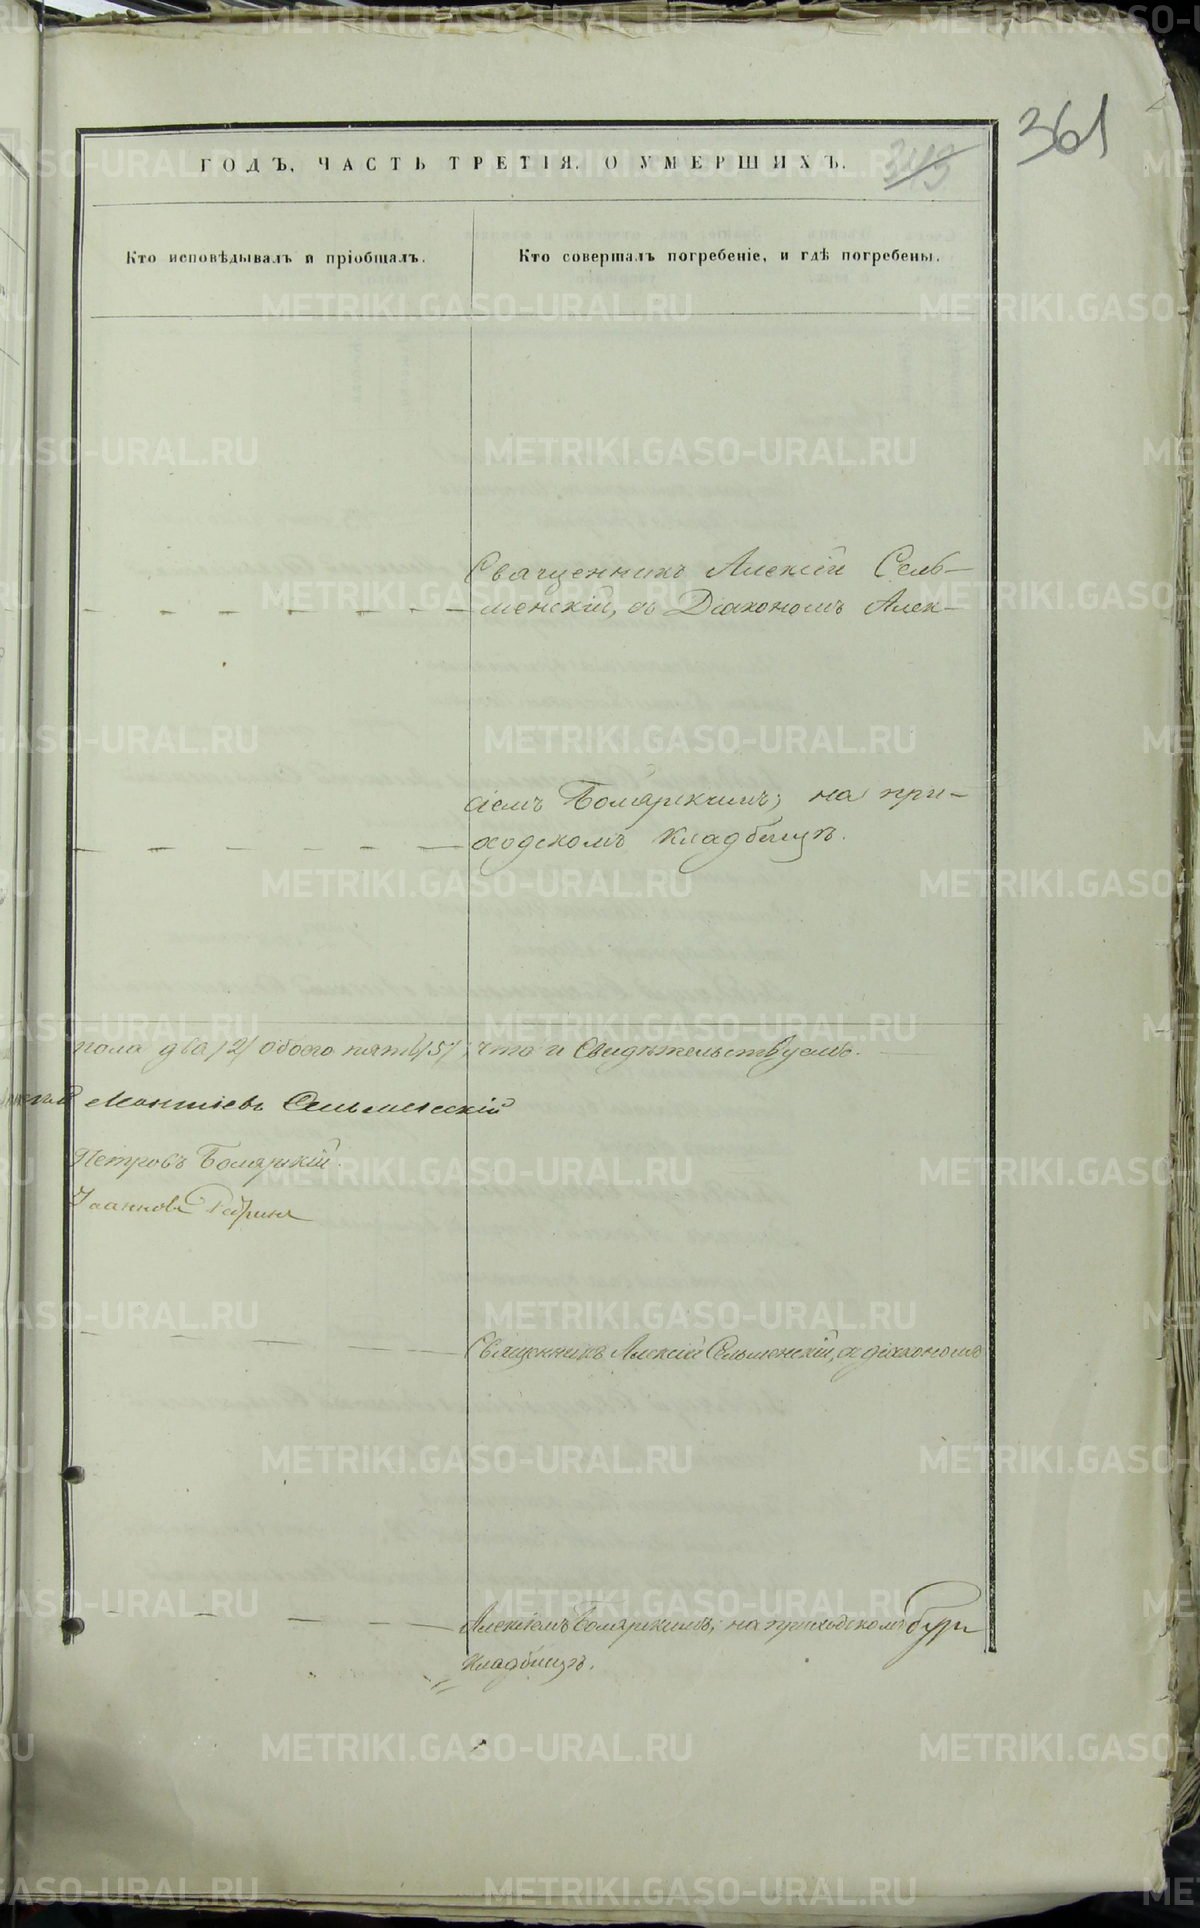 361
ГОДЪ, ЧАСТЬ ТРЕТІЯ, О УМЕРШИХЪ.
343
Кто исповѣдывалъ и пріобщалъ.
Кто совершалъ погребеніе, и гдѣ погребены.
Священникъ Алексій Сель-
менскій, съ Діакономъ Алек-
сіемъ Боярскимъ; на при-
ходскомъ кладбищѣ.
пола два /2/ обоего пять /5/, что и Свидѣтельствуемъ.
Сельменскій
Петровъ Боярскій.
Іоанновъ
Священникъ Алексій Сельменскій, съ діакономъ
Алексіемъ Боярскимъ; на приходскомъ
кладбищѣ.
METRIKI.GASO-URAL.RU